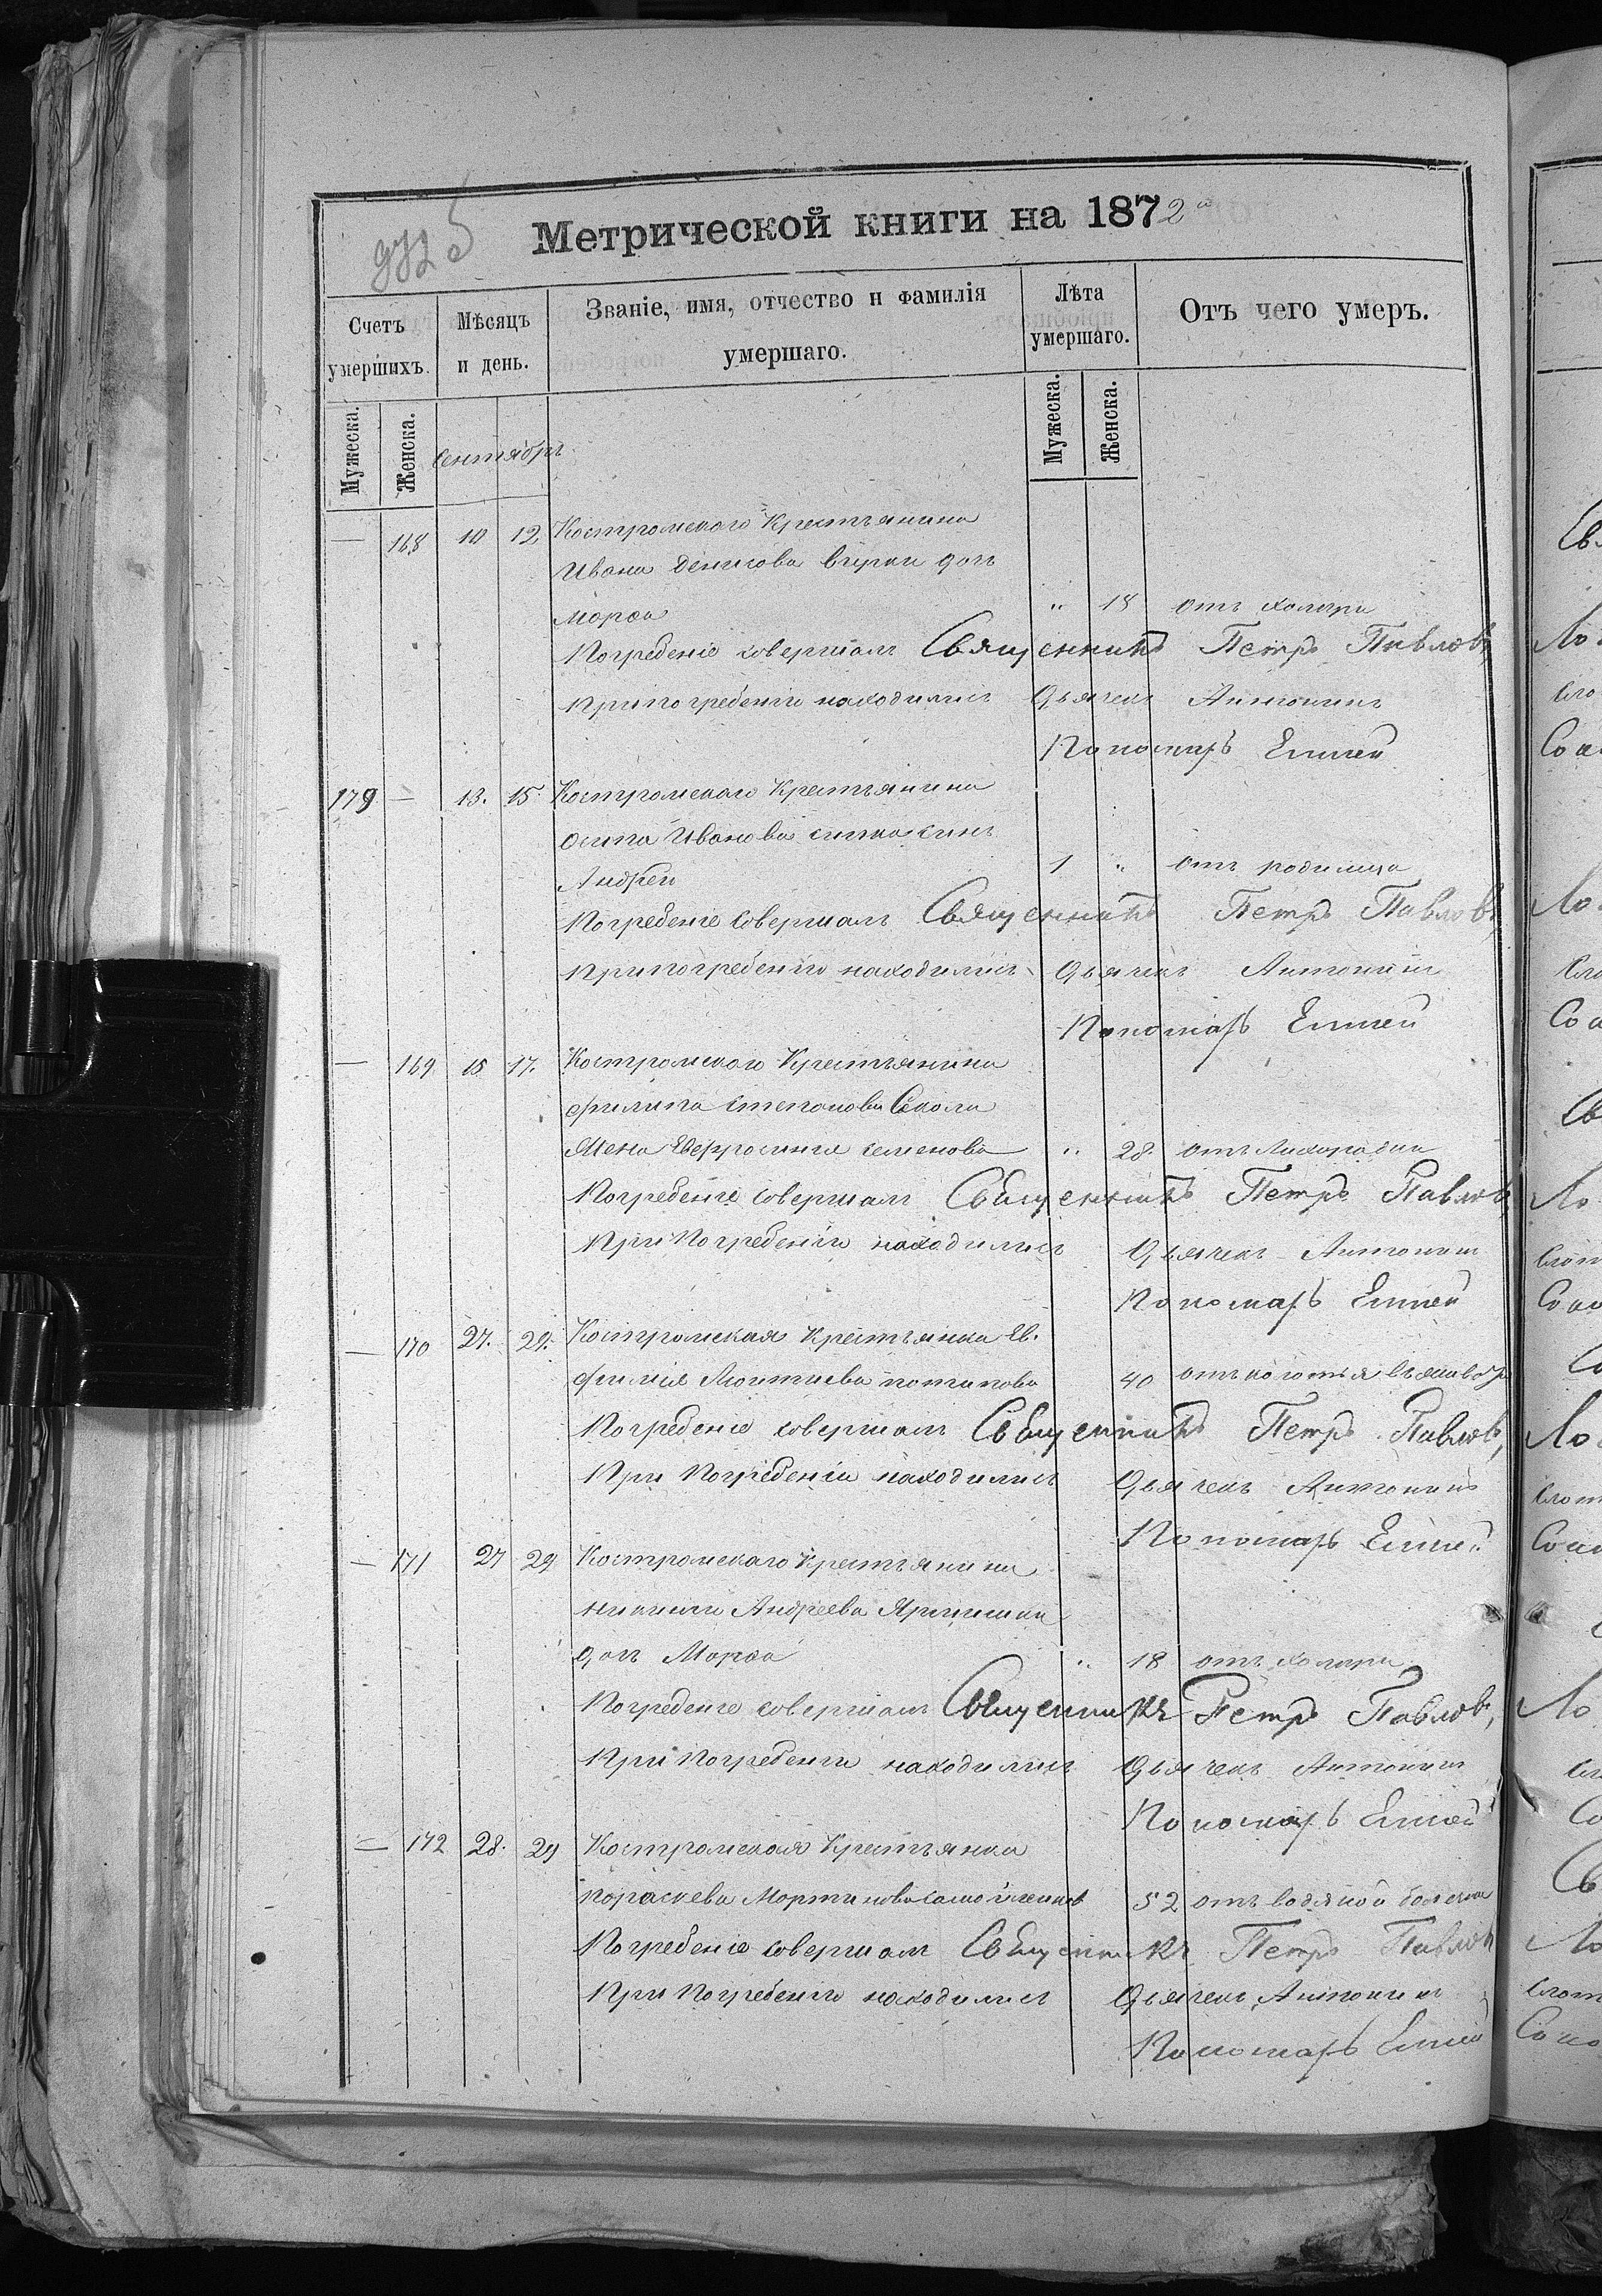 Метрической книги на 1872
Счетъ умершихъ.
Мѣсяцъ и день.
Званіе, имя, отчество и фамилія умершаго.
Лѣта умершаго.
Отъ чего умеръ.
Мужеска.
Женска.
Сентябрь
Мужеска.
Женска.
— 168 10 12 Костромскаго Крестьянина
Ивана Денисова дочь
Марфа " 18 отъ холеры
Погребеніе совершалъ Священникъ Петръ Павловъ,
При погребеніи находились Дьячекъ Антонинъ
Пономарь Елисей
179 — 13. 15. Костромскаго Крестьянина
Осипа Иванова сынъ
Андрей 1 " отъ родимца
Погребеніе совершалъ Священникъ Петръ Павловъ,
При погребеніи находились Дьячекъ Антонинъ
Пономарь Елисей
— 169 15 17. Костромскаго Крестьянина
Филипа Степанова
Жена Евфросинія Семенова " 28 отъ Лихорадки
Погребеніе совершалъ Священникъ Петръ Павловъ
При Погребеніи находились Дьячекъ Антонинъ
Пономарь Елисей
— 170 27. 29. Костромская Крестьянка Ев.
фимія потапова 40
Погребеніе совершалъ Священникъ Петръ Павловъ,
При Погребеніи находились Дьячекъ Антонинъ
Пономарь Елисей
— 171 27 29 Костромскаго Крестьянина
Андреева
дочь Марфа " 18 отъ холеры
Погребеніе совершалъ Священникъ Петръ Павловъ,
При Погребеніи находились Дьячекъ Антонинъ
Пономарь Елисей
— 172 28. 29 Костромская Крестьянка
Параскева Мартинова 52 отъ водяной болезни
Погребеніе совершалъ Священникъ Петръ Павловъ
При Погребеніи находились Дьячекъ Антонинъ
Пономарь Елисей